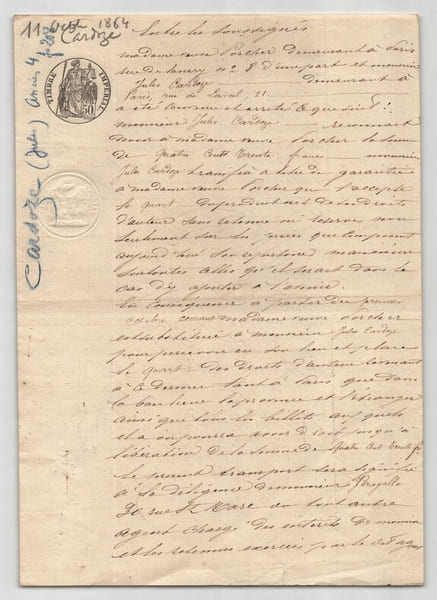 11 Octbre 1864
Cardoze
Cardoze (Jules)
TIMBRE IMPERIAL
50
Entre les soussignés
madame veuve Porcher demeurant à Paris
rue de n° 8 d'une part et monsieur
Jules Cardoze demeurant à
Paris, rue de Laval, 21.
a été convenu et arrêté ce qui suit:
monsieur Jules Cardoze reconnait
devoir à madame veuve Porcher la somme
de quatre cent trente francs monsieur
Jules Cardoze transfère à titre de garantie
à madame veuve Porcher qui l'accepte
le quart du produit net de ses droits
d'auteur sans retenue ni réserve, non
seulement sur les pièces qui composent
aujourd'hui son répertoire mais encore
sur toutes celles qu'il serait dans le
cas d'y ajouter à l'avenir.
En conséquence à partir du premier
octobre courant madame veuve Porcher
est substituée à monsieur Jules Cardoze
pour percevoir en son lieu et place
le quart des droits d'auteur revenant
à ce dernier tant à Paris que dans
la banlieue la province et l'étranger
ainsi que tous les billets auxquels
il a ou pourra avoir droit jusqu'à
libération de la somme de quatre cent trente fr
Le présent transport sera signifié
à la diligence de monsieur Peragallo
30 rue St Marc ou tout autre
agent chargé des intérêts de monsieur
et les retenues exercées par le dit agent